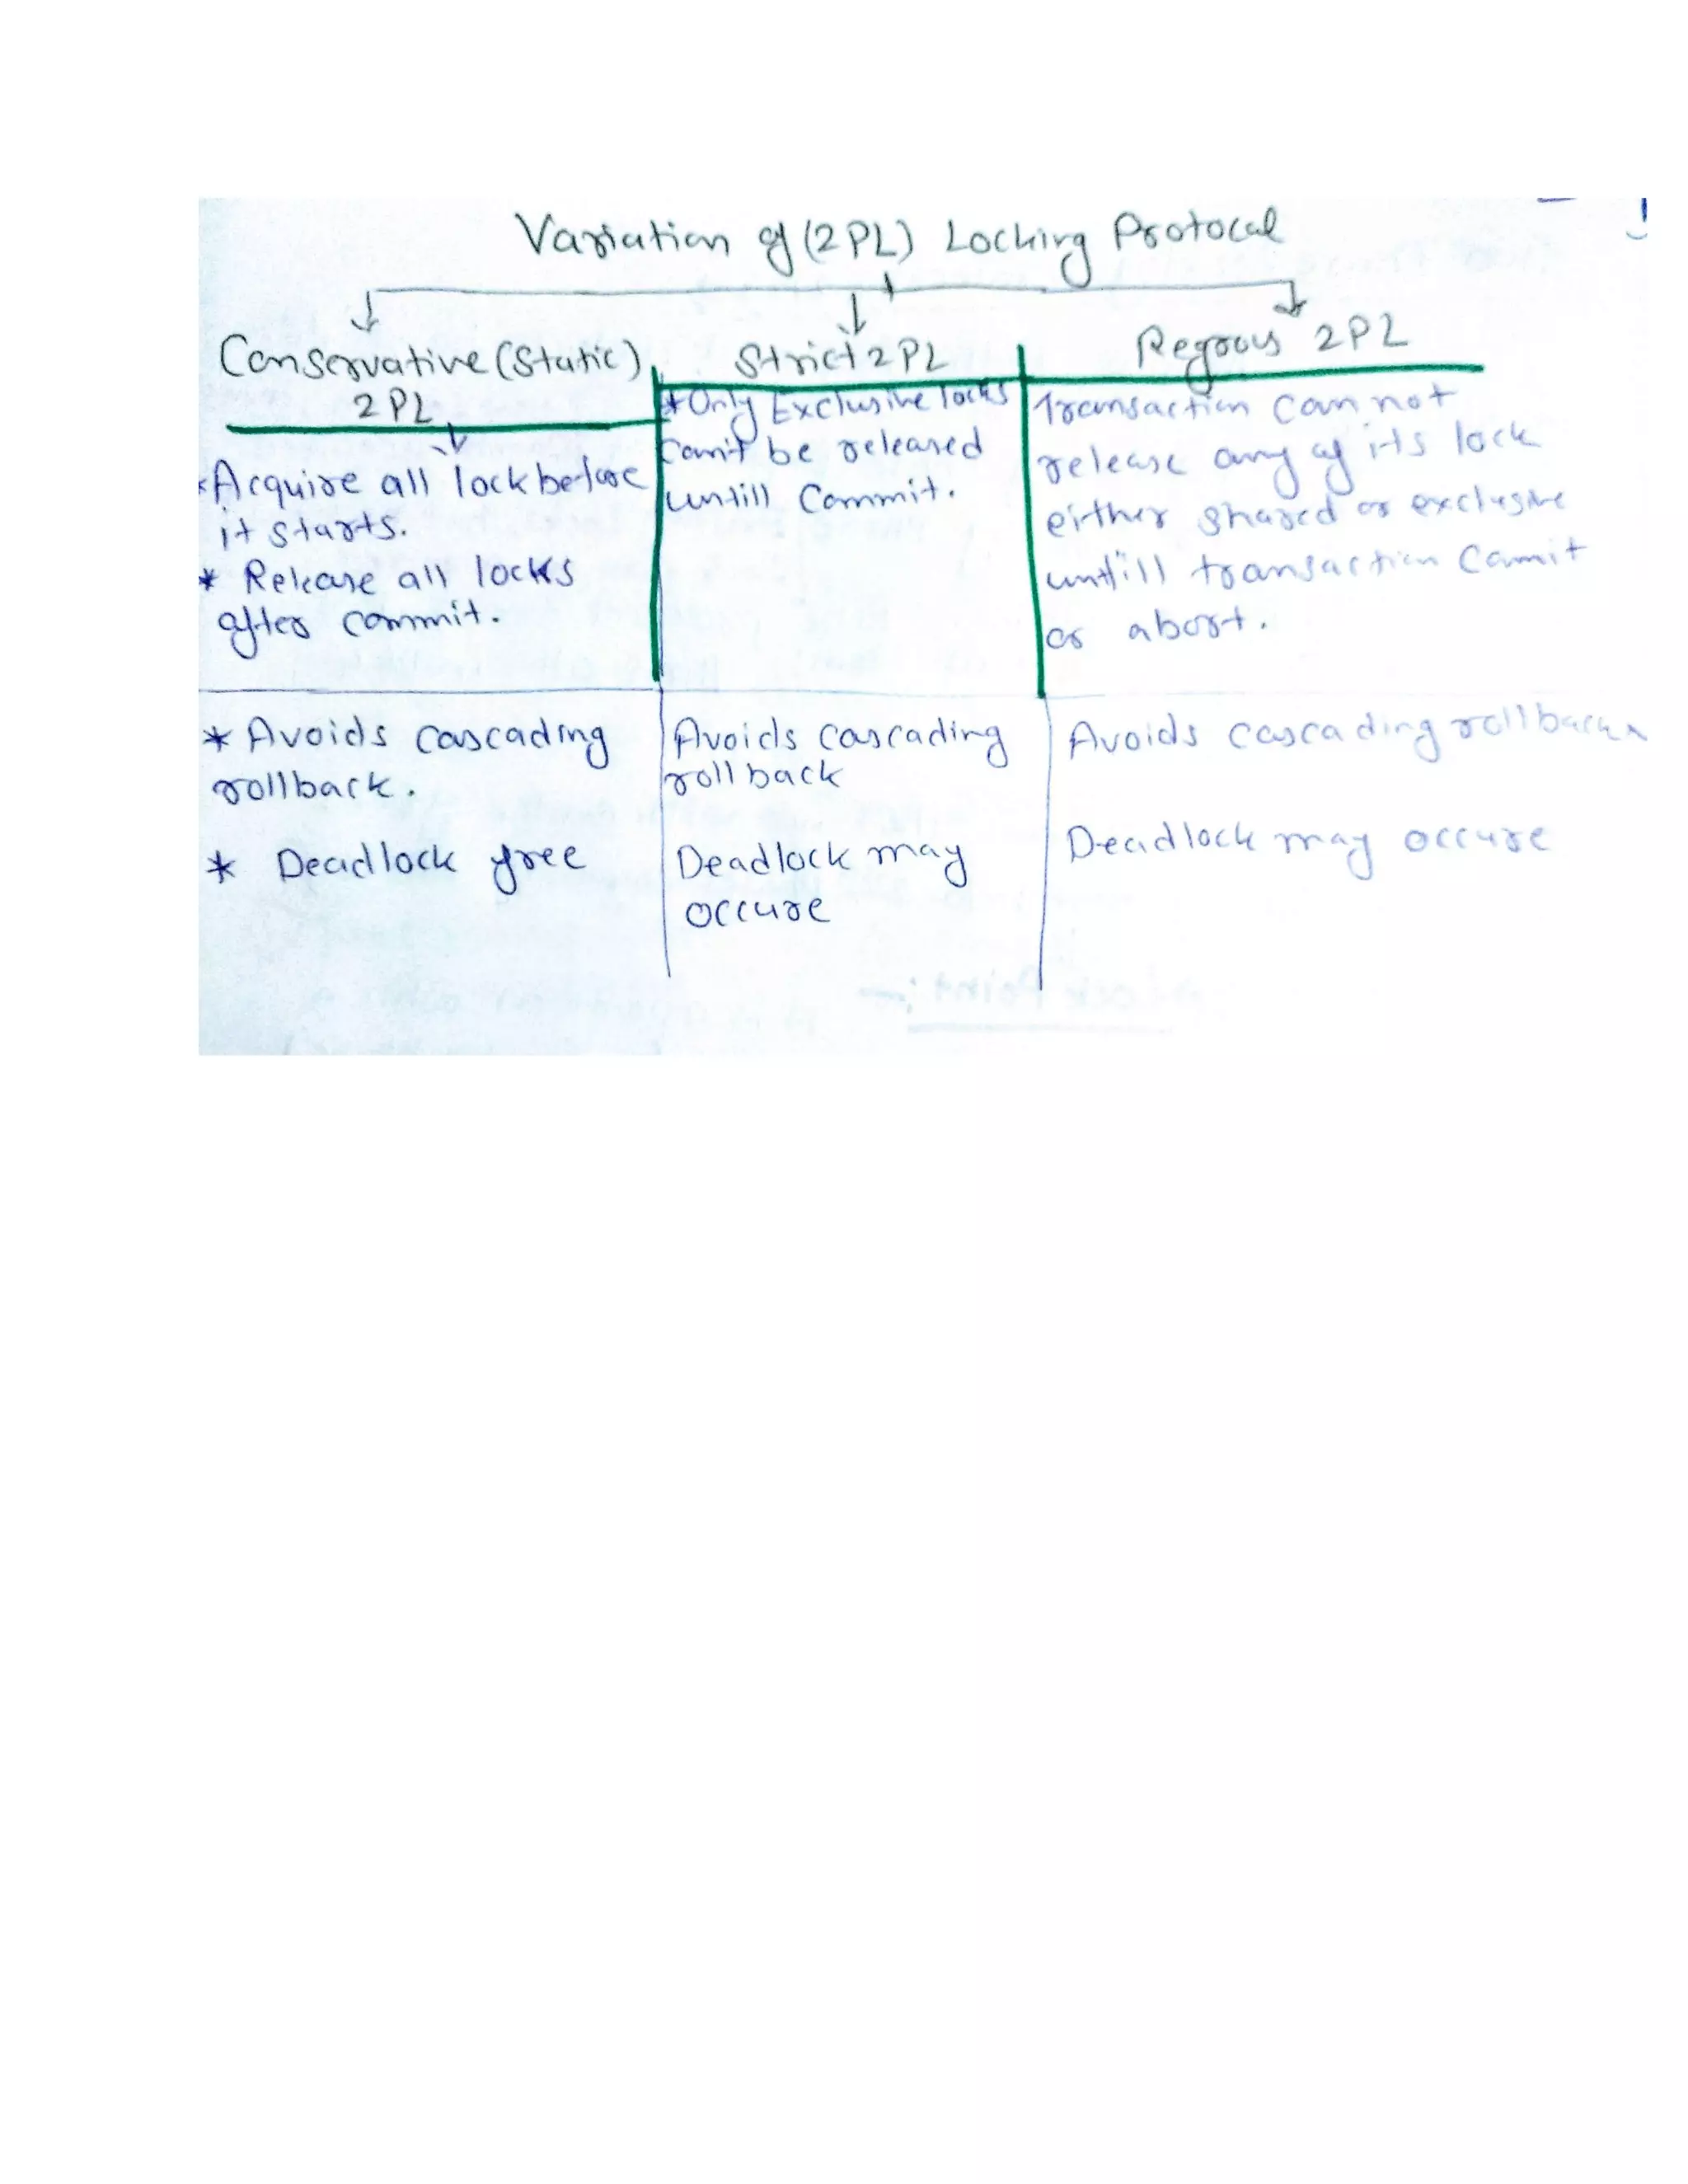 Variation of (2PL) Locking Protocal
Conservative (Static)
2PL
* Acquire all lock before
it starts.
* Release all locks
after commit.
* Avoids cascading
rollback.
* Deadlock free
Strict 2PL
* Only Exclusive locks
can't be released
untill Commit.
Avoids cascading
rollback
Deadlock may
occure
Regrous 2PL
Transaction can not
release any of its lock
either shared or exclusive
untill transaction Commit
or abort.
Avoids cascading rollback
Deadlock may occure